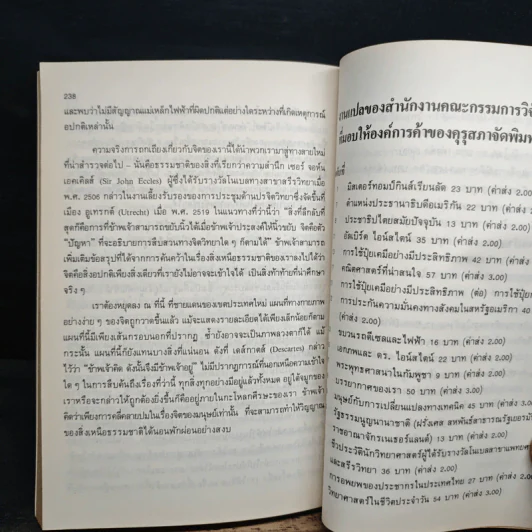 238
และพบว่าไม่มีสัญญาณแม่เหล็กไฟฟ้าที่ผิดปกติแต่อย่างใดระหว่างที่เกิดเหตุการณ์
อปกติเหล่านั้น
ความจริงการถกเถียงเกี่ยวกับจิตของเรานี้ได้นำพวกเรามาสู่ทางสายใหม่
ที่น่าสำรวจต่อไป – นั่นคือธรรมชาติของสิ่งที่เรียกว่าความสำนึก เซอร์ จอห์น
เอคเคิลส์ (Sir John Eccles) ผู้ซึ่งได้รับรางวัลโนเบลทางสาขาสรีรวิทยาเมื่อ
พ.ศ. 2506 กล่าวในงานเลี้ยงรับรองของการประชุมด้านปรจิตวิทยาซึ่งจัดขึ้นที่
เมือง อูเทรกต์ (Utrecht) เมื่อ พ.ศ. 2519 ในแนวทางที่ว่านี้ว่า “สิ่งที่ลึกลับที่
สุดก็คือการที่ข้าพเจ้าสามารถขยับนิ้วได้เมื่อข้าพเจ้าประสงค์ให้นิ้วขยับ จิตคือตัว
“ปัญหา” ที่จะอธิบายการสืบสวนทางจิตวิทยาใด ๆ ก็ตามได้” ข้าพเจ้าสามารถ
เพิ่มเติมข้อสรุปที่ได้จากการค้นคว้าในเรื่องสิ่งเหนือธรรมชาติของเราลงไปได้ว่า
จิตคือสิ่งอปกติเพียงสิ่งเดียวที่เรายังไม่อาจจะเข้าใจได้ เป็นสิ่งท้าทายที่น่าศึกษา
จริง ๆ
เราต้องหยุดลง ณ ที่นี้ ที่ชายแดนของเขตประเทศใหม่ แผนที่ทางกายภาพ
อย่างง่าย ๆ ของจิตถูกวาดขึ้นแล้ว แม้จะแสดงรายละเอียดได้เพียงเล็กน้อยก็ตาม
แผนที่นี้มีเพียงเส้นกรอบนอกที่ปรากฏ ซ้ำยังอาจจะเป็นภาพลวงตาก็ได้ แม้
กระนั้น แผนที่นี้ก็ยังแทนบางสิ่งที่แน่นอน ดังที่ เดส์กาตส์ (Descartes) กล่าว
ไว้ว่า “ข้าพเจ้าคิด ดังนั้นจึงมีข้าพเจ้าอยู่” ไม่มีปรากฏการณ์ที่นอกเหนือความเข้าใจ
ใด ๆ ในการสืบค้นถึงเรื่องที่ว่านี้ ทุกสิ่งทุกอย่างมีอยู่แล้วทั้งหมด อยู่ใต้จมูกของ
เราหรือจะกล่าวให้ถูกต้องยิ่งขึ้นก็คืออยู่ภายในกะโหลกศีรษะของเรา ข้าพเจ้า
คิดว่าเพียงการคลี่คลายปมในเรื่องจิตของมนุษย์เท่านั้น ที่จะสามารถทำให้วิญญาณ
ของสิ่งเหนือธรรมชาติได้นอนพักผ่อนอย่างสงบ
านแปลของสำนักงานคณะกรรมการวิจั
ที่มอบให้องค์การค้าของคุรุสภาจัดพิมพ
มิสเตอร์ทอมป์กินส์เรียนลัด 23 บาท (ค่าส่ง 2.00)
ตำแหน่งประธานาธิบดีอเมริกัน 22 บาท (ค่าส่ง 2.00)
ประชาธิปไตยสมัยปัจจุบัน 13 บาท (ค่าส่ง 2.00)
อัลเบิร์ต ไอน์สไตน์ 35 บาท (ค่าส่ง 2.00)
การใช้ปุ๋ยเคมีอย่างมีประสิทธิภาพ 42 บาท (ค่าส่ง
คณิตศาสตร์ที่น่าสนใจ 57 บาท (ค่าส่ง 3.00)
การใช้ปุ๋ยเคมีอย่างมีประสิทธิภาพ (ต่อ) การใช้ปุ๋ย
การประกันความมั่นคงทางสังคมในสหรัฐอเมริกา 40
2.00)
ขบวนรถดีเซลและไฟฟ้า 16 บาท (ค่าส่ง 2.00)
เอกภพและ ดร. ไอน์สไตน์ 22 บาท (ค่าส่ง 2.00)
พระพุทธศาสนาในกัมพูชา 9 บาท (ค่าส่ง 2.00)
บรรยากาศของเรา 50 บาท (ค่าส่ง 3.00)
มนุษย์กับการเปลี่ยนแปลงทางเทคนิค 45 บาท (ค่าส่ง
รัฐธรรมนูญนานาชาติ (ฝรั่งเศส สหพันธ์สาธารณรัฐเยอรมั
ราชอาณาจักรเนเธอร์แลนด์) 13 บาท (ค่าส่ง 2.00)
ชีวประวัตินักวิทยาศาสตร์ผู้ได้รับรางวัลโนเบลสาขาแพทยศ
และสรีรวิทยา 36 บาท (ค่าส่ง 2.00)
การอพยพของประชากรในประเทศไทย 27 บาท (ค่าส่ง 2.00)
วิทยาศาสตร์ในชีวิตประจำวัน 54 บาท (ค่าส่ง 3.00)